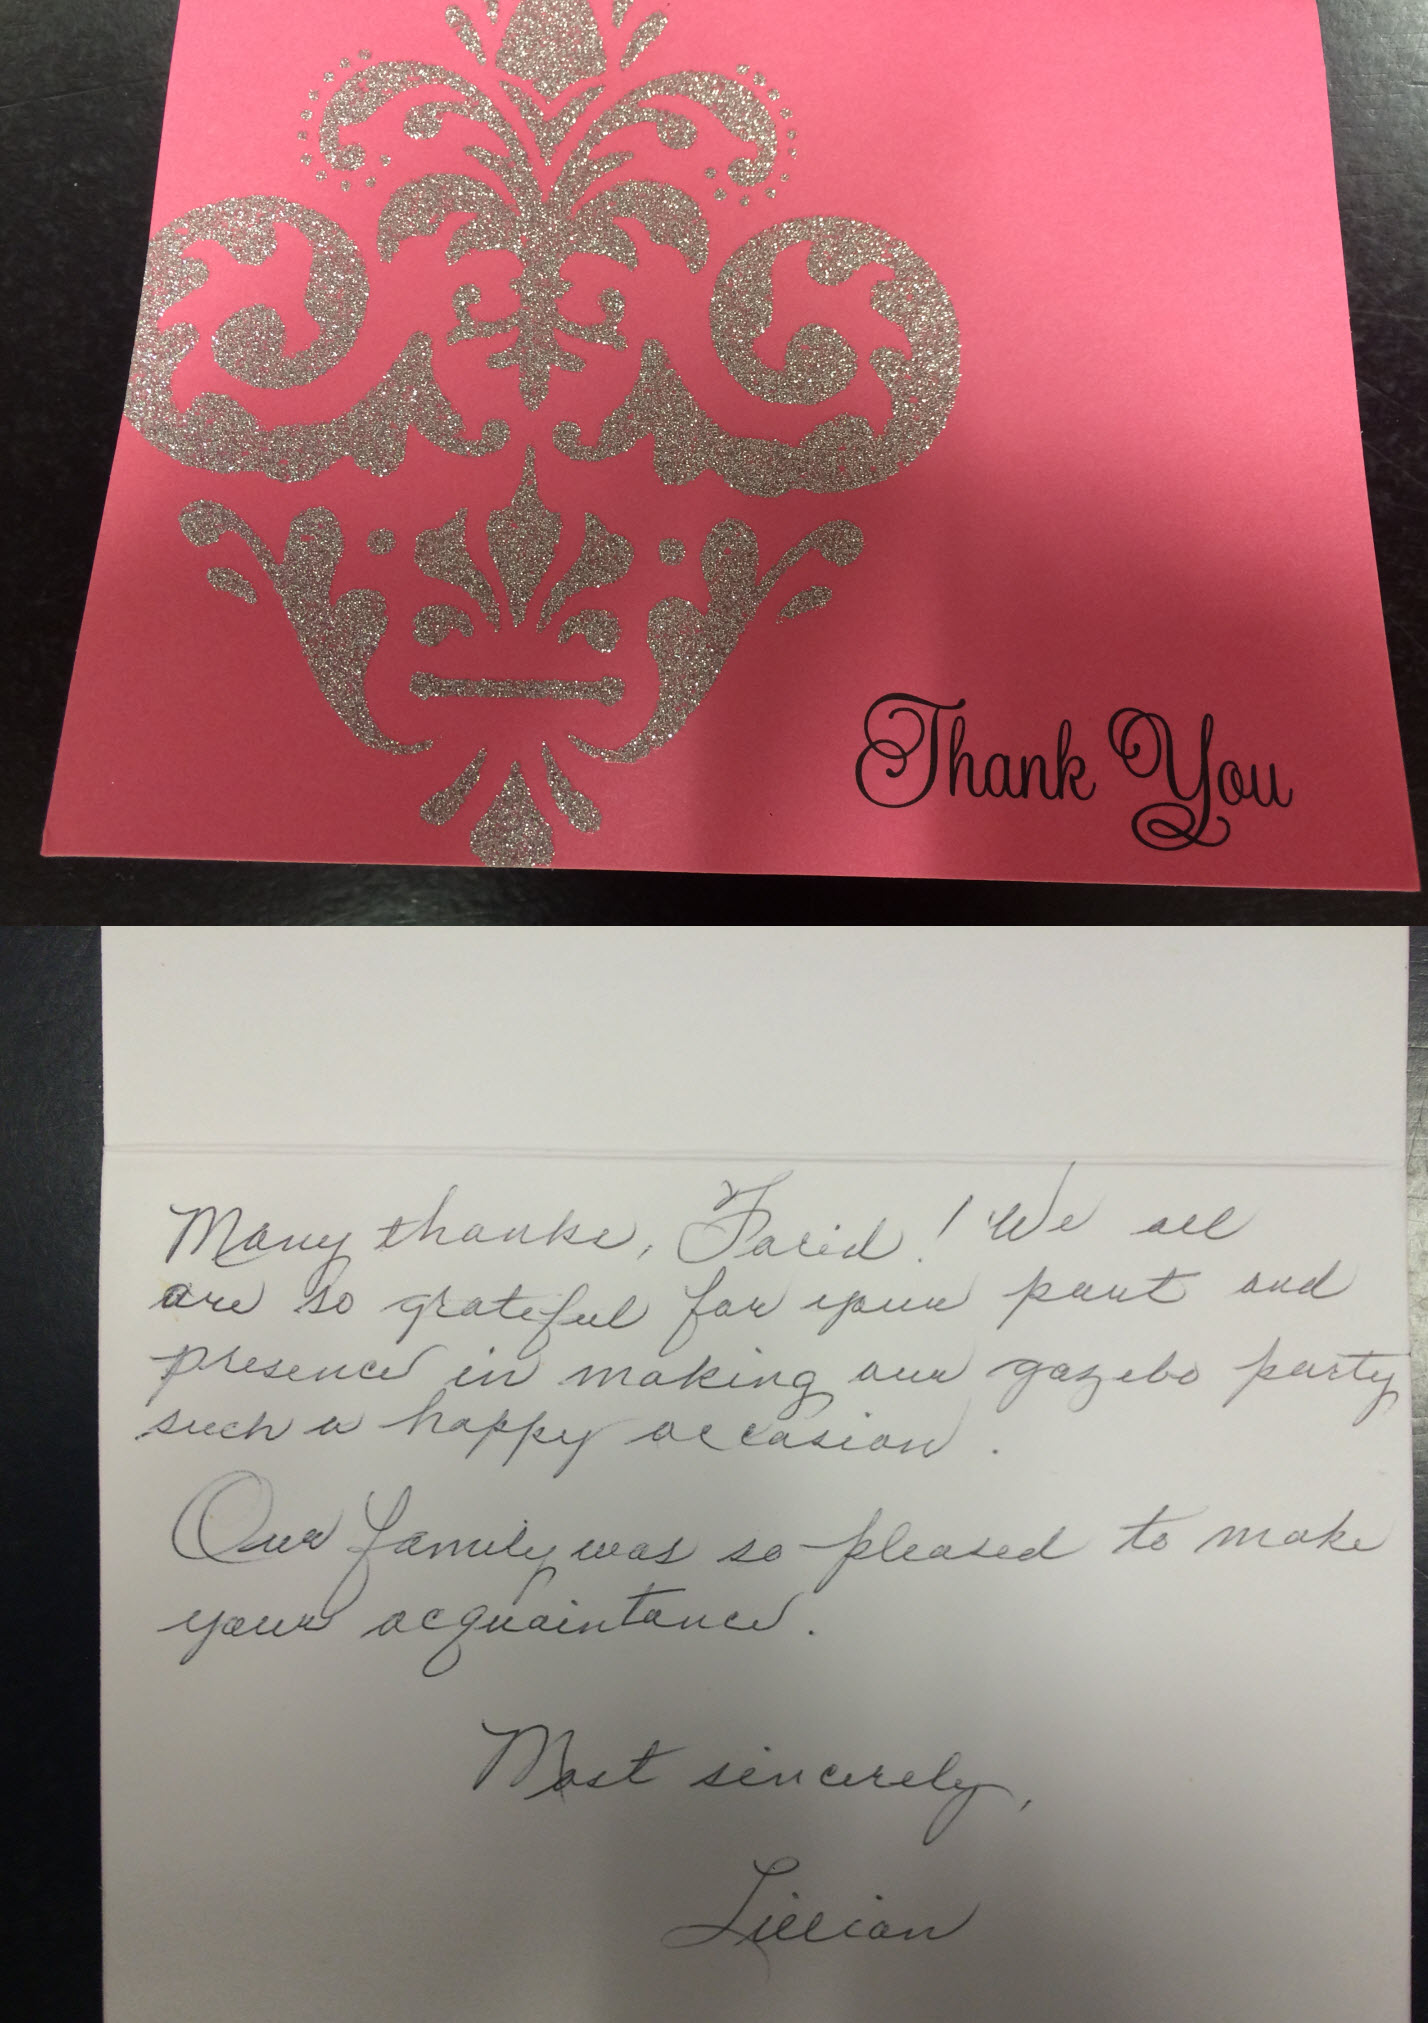 Thank You
Many thanks, Farid! We all
are so grateful for your part and
presence in making our gazebo party
such a happy occasion.
Our family was so pleased to make
your acquaintance.
Most sincerely,
Lillian